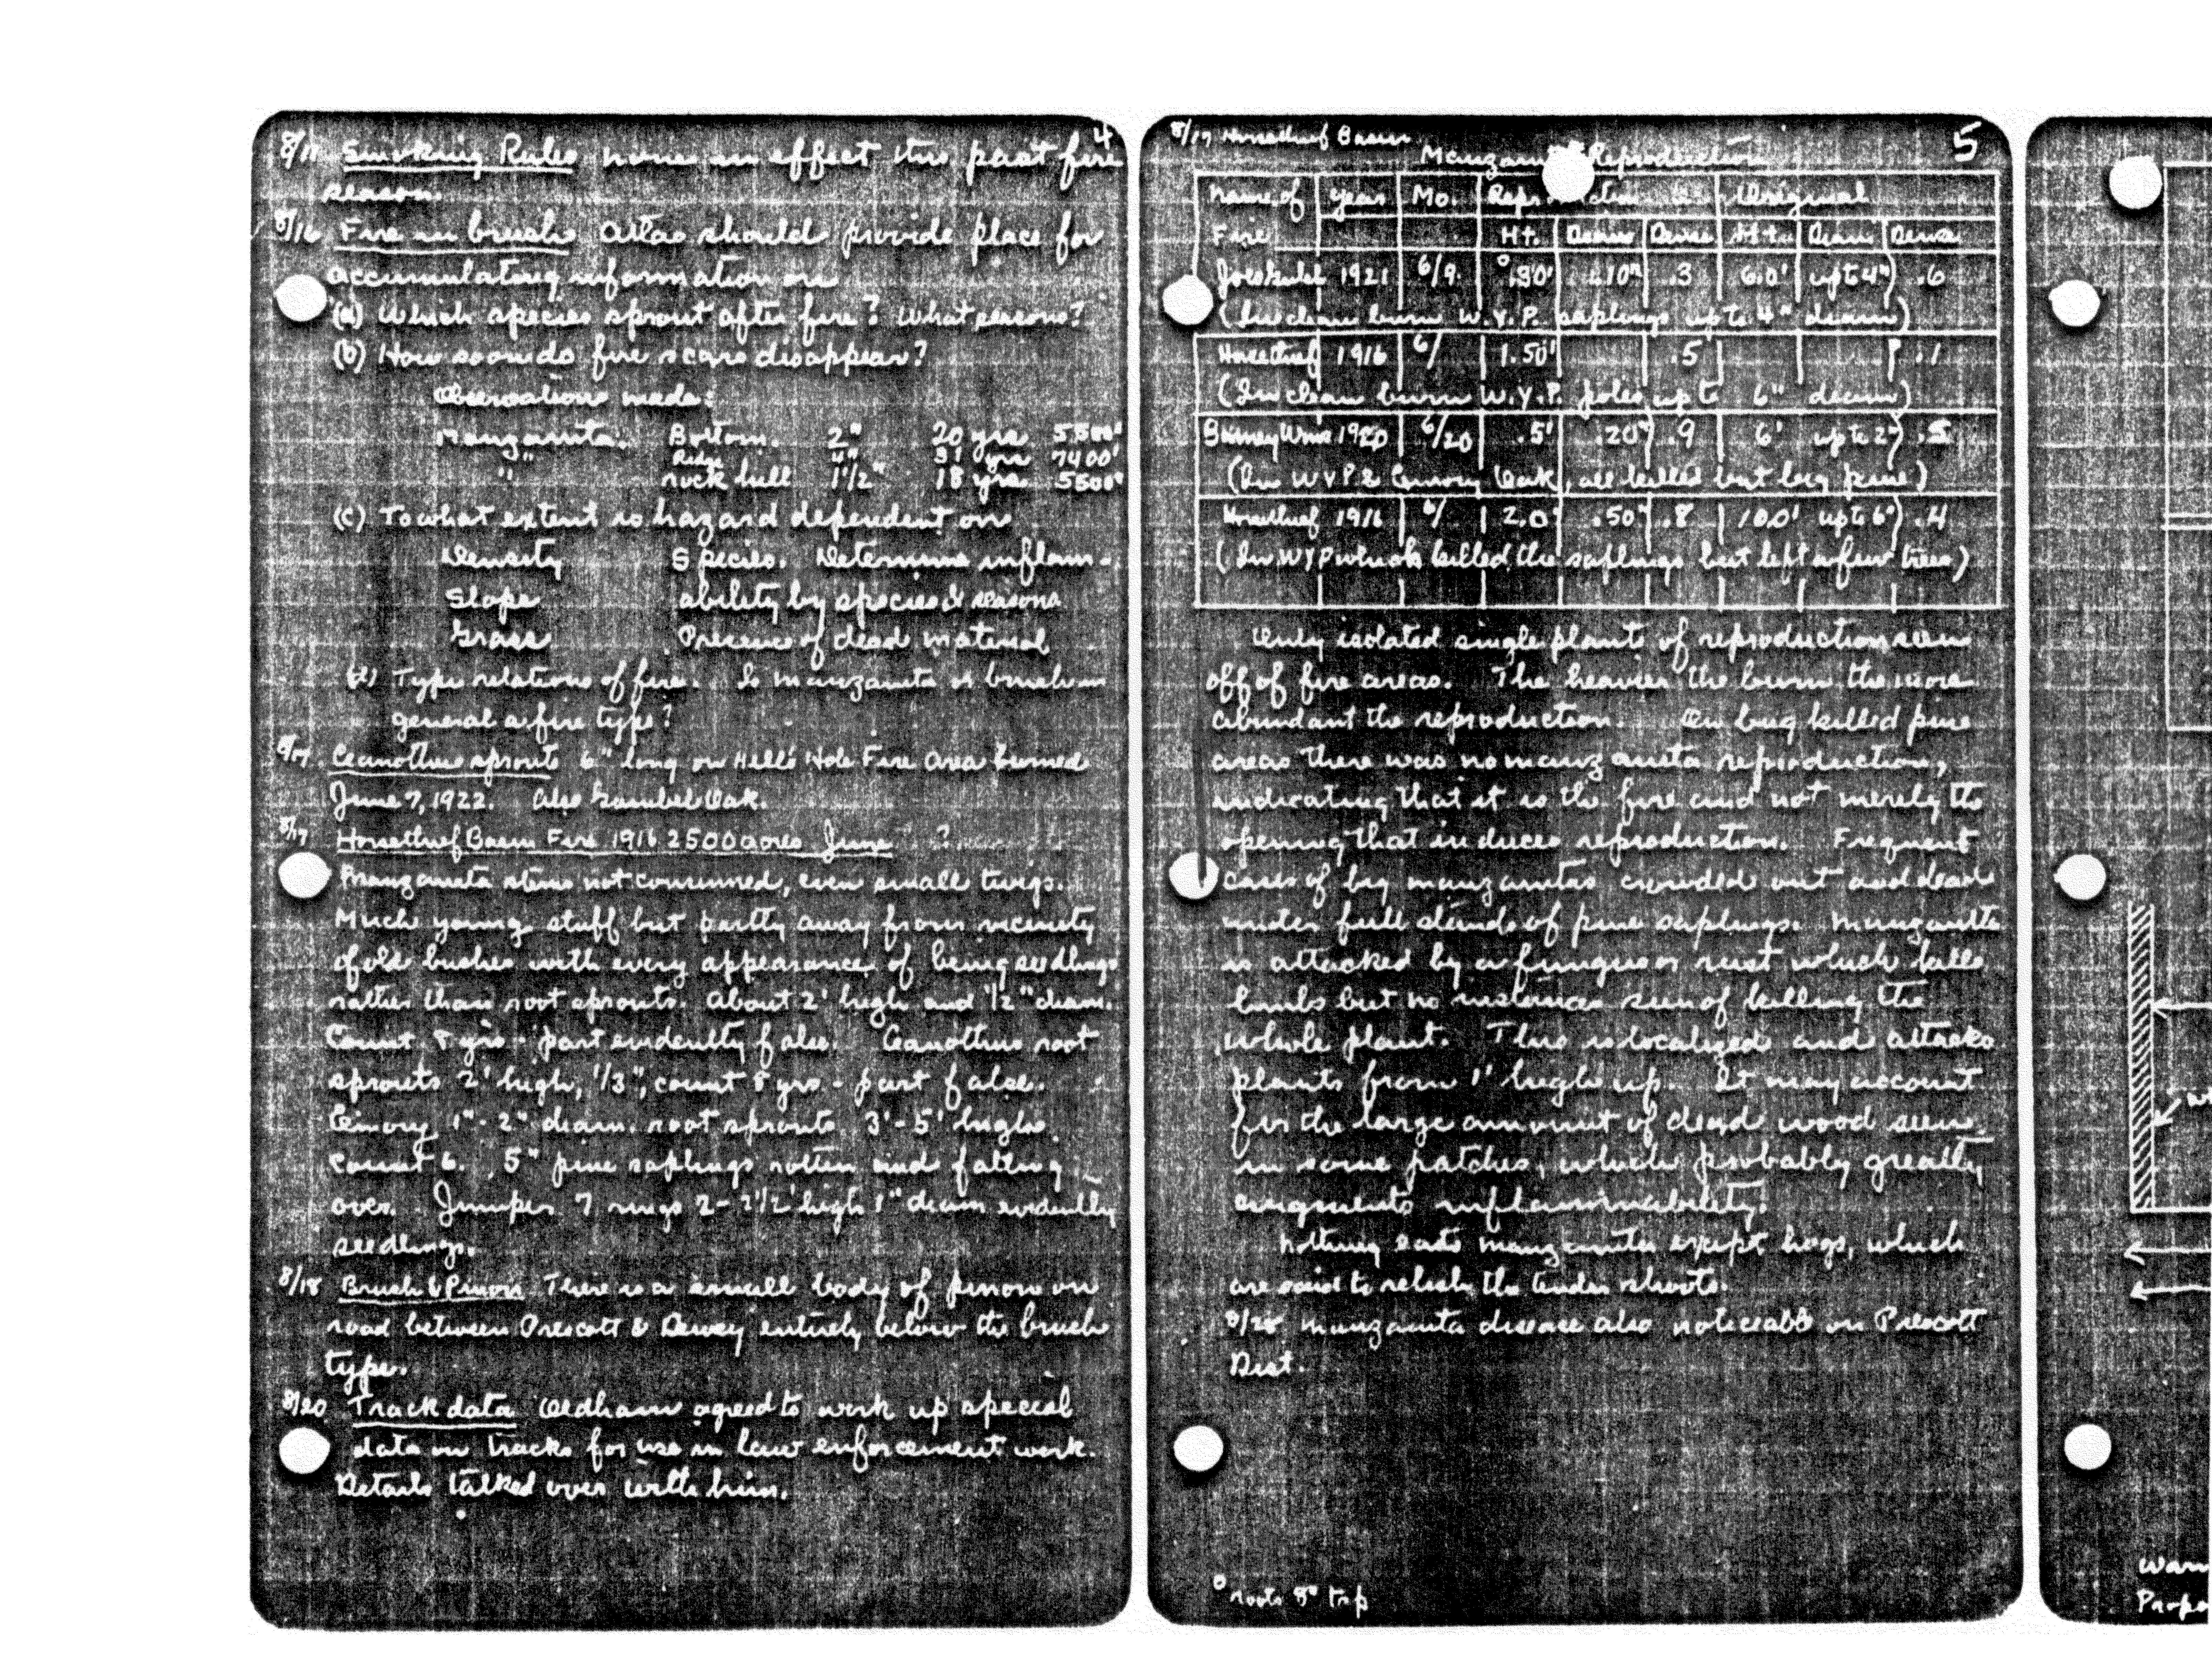 4
8/17 Smoking Rules none in effect this past fire
season.
8/16 Fire in brush Atlas should provide place for
accumulating information on
(a) Which species sprout after fire? What seasons?
(b) How soon do fire scars disappear?
Observations made:
Manzanita. Bottom. 2" 20 yrs 5500'
" Ridge 4" 31 yrs 7400'
rock hill 1 1/2" 18 yrs 5500'
(c) To what extent is hazard dependent on
Density Species. Determine inflam-
Slope ability by species & seasons
Grass Presence of dead material
(d) Type relations of fire. Is manzanita or brush in
general a fire type?
8/17. Ceanothus sprouts 6" long on Hell's Hole Fire Area burned
June 7, 1922. Also Gambel Oak.
8/17 Horsethief Basin Fire 1916 2500 acres June ?
Manzanita stems not consumed, even small twigs.
Much young stuff but partly away from vicinity
of old bushes with every appearance of being seedlings
rather than root sprouts. About 2' high and 1/2" diam.
Count 8 yrs - part evidently false. Ceanothus root
sprouts 2' high, 1/3", count 8 yrs - part false.
Emory 1"-2" diam. root sprouts 3'-5' high.
Count 6. 5" pine saplings rotten and falling
over. Juniper 7 rings 2-2 1/2' high 1" diam evidently
seedlings.
8/18 Brush & Pinon There is a small body of pinon on
road between Prescott & Dewey entirely below the brush
type.
8/20 Track data Oldham agreed to work up special
data on tracks for use in law enforcement work.
Details talked over with him.
8/17 Horsethief Basin 5
Manzanita Reproduction
Name of Year Mo. Reproduction Original
Fire Ht. Diam Dense Ht. Diam Dense
1921 6/9. .30' .10" .3 6.0' up to 4" .6
(In clean burn W.Y.P. saplings up to 4" diam)
Horsethief 1916 6/ 1.50' .5 ? .1
(In clean burn W.Y.P. poles up to 6" diam)
1920 6/20 .5' .20" .9 6' up to 2" .5
(In WYP & Emory Oak, all killed but big pine)
Horsethief 1916 6/ 2.0' .50" .8 10.0' up to 6" .4
(In WYP which killed the saplings but left a few trees)
Only isolated single plants of reproduction seen
off of fire areas. The heavier the burn the more
abundant the reproduction. On bug killed pine
areas there was no manzanita reproduction,
indicating that it is the fire and not merely the
opening that induces reproduction. Frequent
cases of big manzanitas crowded out and dead
under full stands of pine saplings. Manzanita
is attacked by a fungus or rust which kills
limbs but no instances seen of killing the
whole plant. This is localized and attacks
plants from 1' high up. It may account
for the large amount of dead wood seen
in some patches, which probably greatly
augments inflammability.
Nothing eats manzanita except hogs, which
are said to relish the tender shoots.
8/28 Manzanita disease also noticeable on Prescott
Dist.
° roots 8" top